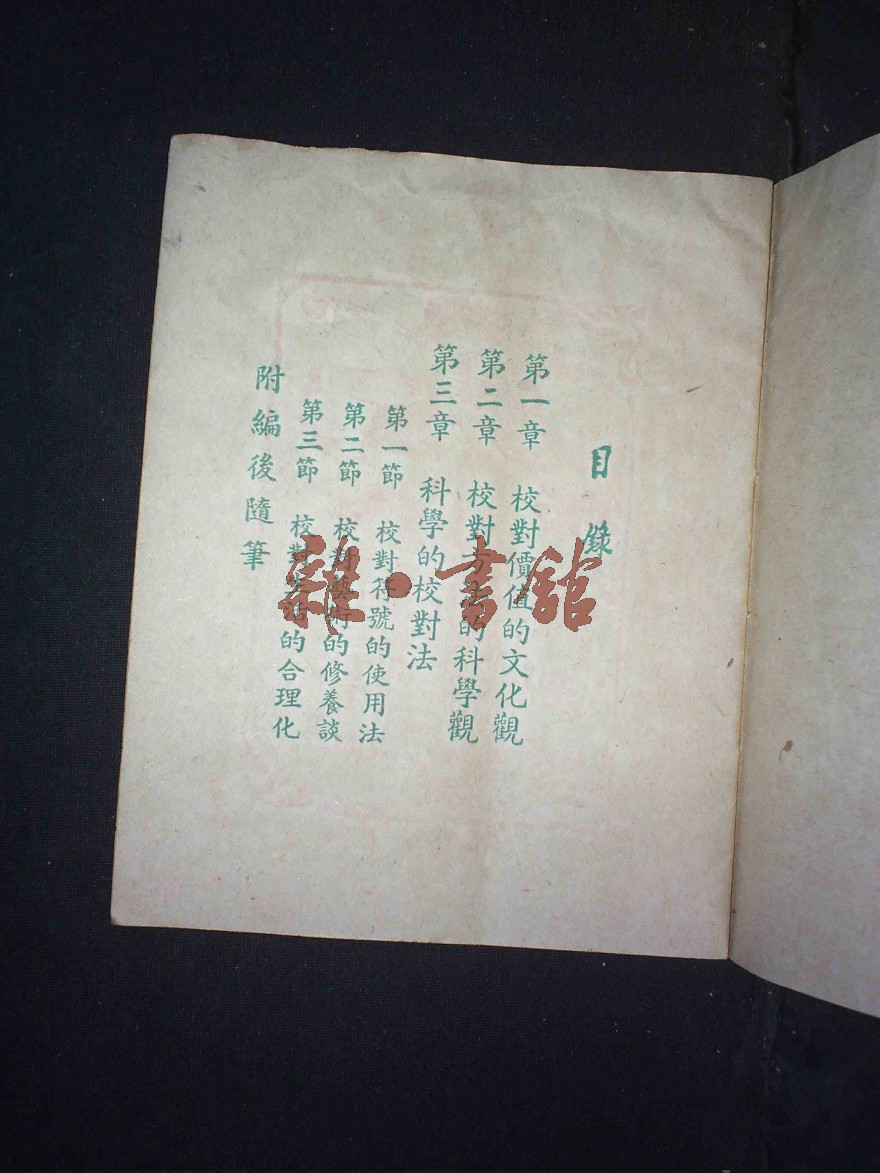 目錄
第一章 校對價值的文化觀
第二章 校對方法的科學觀
第三章 科學的校對法
第一節 校對符號的使用法
第二節 校對藝術的修養談
第三節 校對生活的合理化
附編後隨筆
雜·書館